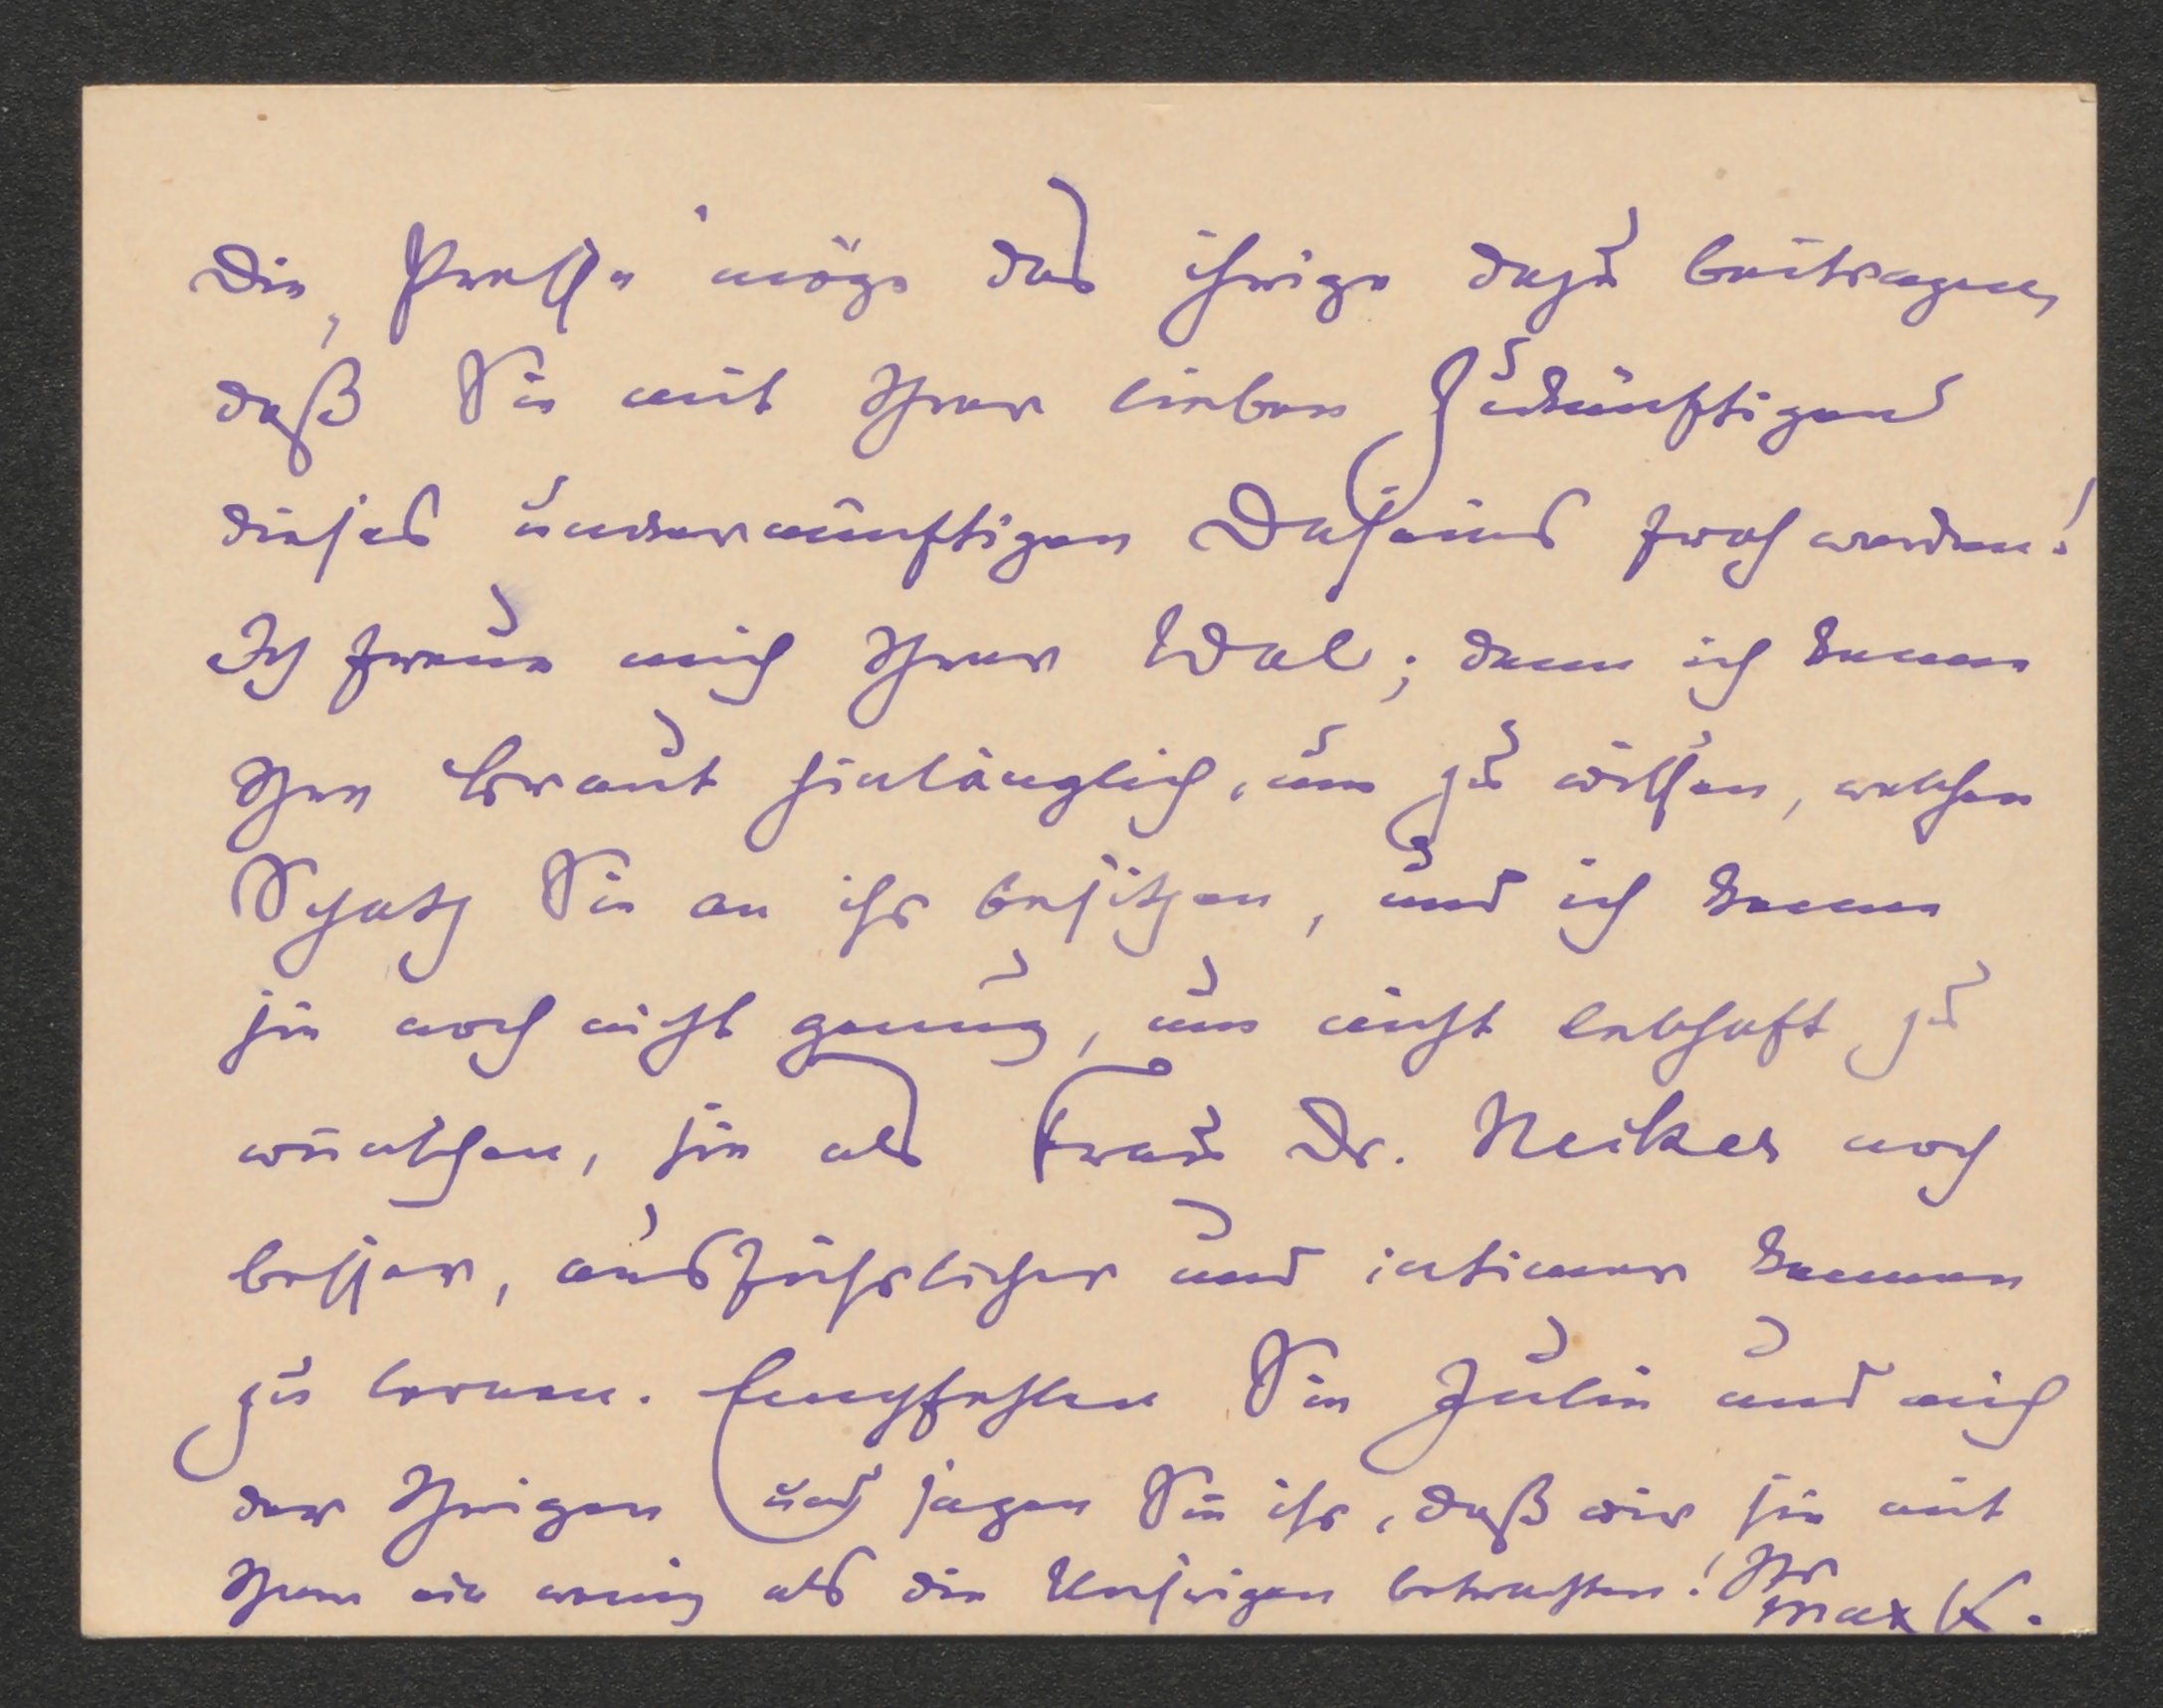 Die „Presse“ möge das ihrige dazu beitragen,
daß Sie mit Ihrer lieben Zukünftigen
dieses unvernünftigen Daseins froh werden!
Ich freue mich Ihrer Wal; denn ich kenne
Ihre Braut hinlänglich, um zu wissen, welchen
Schatz Sie an ihr besitzen, und ich kenne
sie noch nicht genug, um nicht lebhaft zu
wünschen, sie als Frau Dr. Necker noch
besser, ausführlicher und intimer kennen
zu lernen. Empfehlen Sie Julie und mich
der Ihrigen und sagen Sie ihr, daß wir sie mit
Ihnen ein wenig als die Unsrigen betrachten! Ihr
Max K.